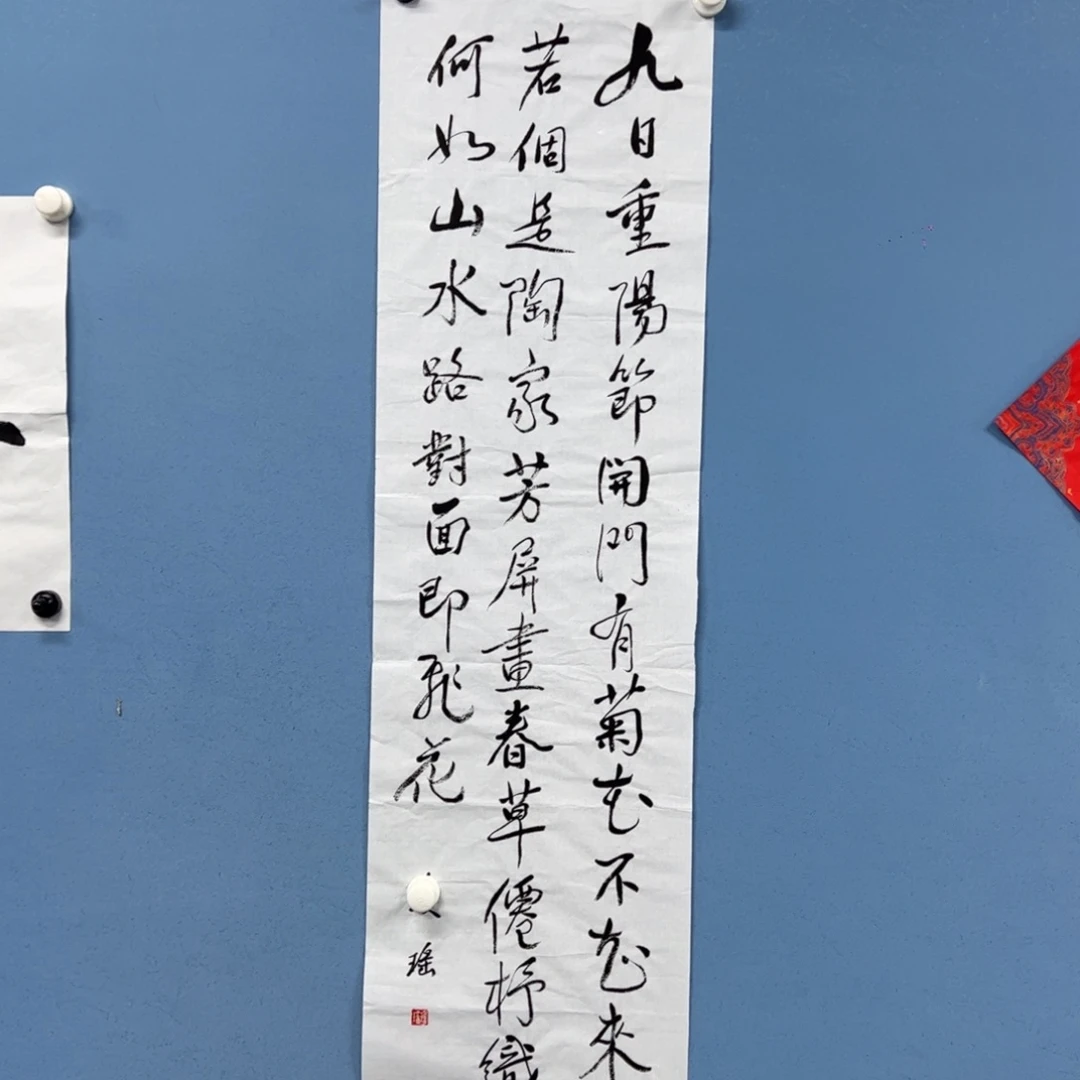 九日重陽節開門有菊花不知來
若個是陶家芳屏畫春草僊杼織
何如山水路對面即飛花
瑤